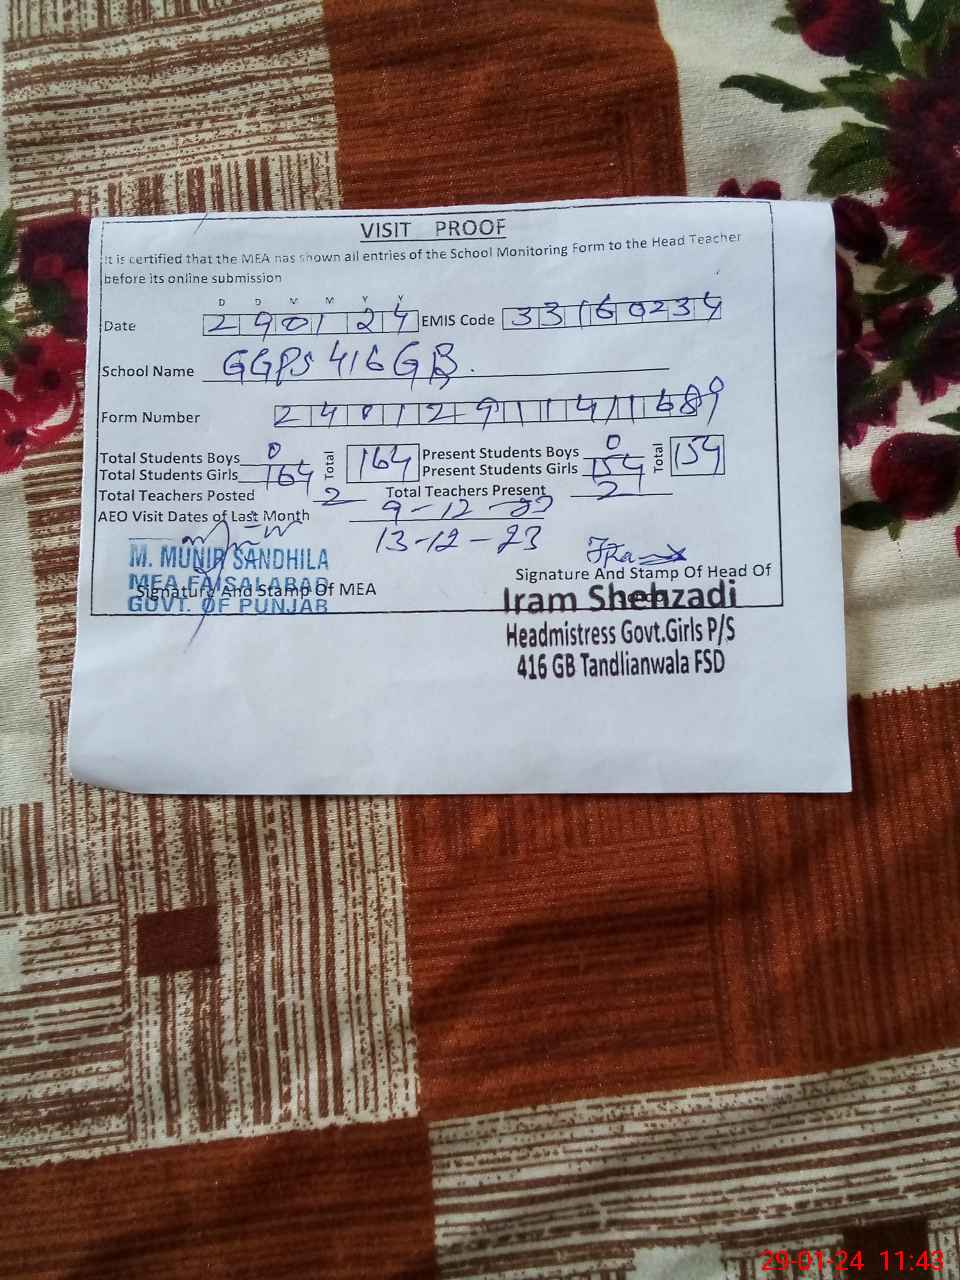 VISIT PROOF
It is certified that the MEA has shown all entries of the School Monitoring Form to the Head Teacher
before its online submission
D D M M Y Y
Date 290124 EMIS Code 33160234
School Name GGPS 416 GB.
Form Number 24012911411689
Total Students Boys 0 Total 164 Present Students Boys 0 Total 154
Total Students Girls 164 Present Students Girls 154
Total Teachers Posted 2 Total Teachers Present 2
AEO Visit Dates of Last Month 9-12-23
13-12-23
M. MUNIR SANDHILA
MEA FAISALABAD
GOVT. OF PUNJAB
Signature And Stamp Of MEA
Signature And Stamp Of Head Of
Iram Shehzadi
Headmistress Govt.Girls P/S
416 GB Tandlianwala FSD
29-01-24 11:43